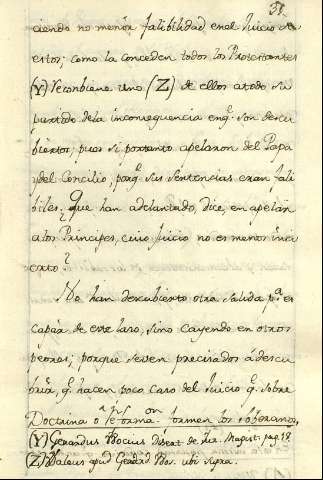 31.
ciendo no menòr falibilidad en el Juicio de
estos; como la conceden todos los Protestantes
(Y) Reconbiene uno (Z) de ellos a todo su
partido de la inconsequencia enq.e son descu
biertos, pues si portanto apelaron del Papa
y del Concilio, porq.e sus sentencias eran fali
biles; Que han adelantado, dice, en apelàr
a los Principes, cuio Juicio no es menos inci
erto?
No han descubierto otra salida p.a es
capàr de este laso, sino cayendo en otros
peores; porque seven precisados à descu
brir, q.e hacen poco caso del Juicio q.e sobre
Doctrina o Reforma formen los soberanos,
(Y) Gerardus Bocius disert. de Jur. Magist. pag. 18.
(Z) Waleus apud Gerard Boc. ubi supra.